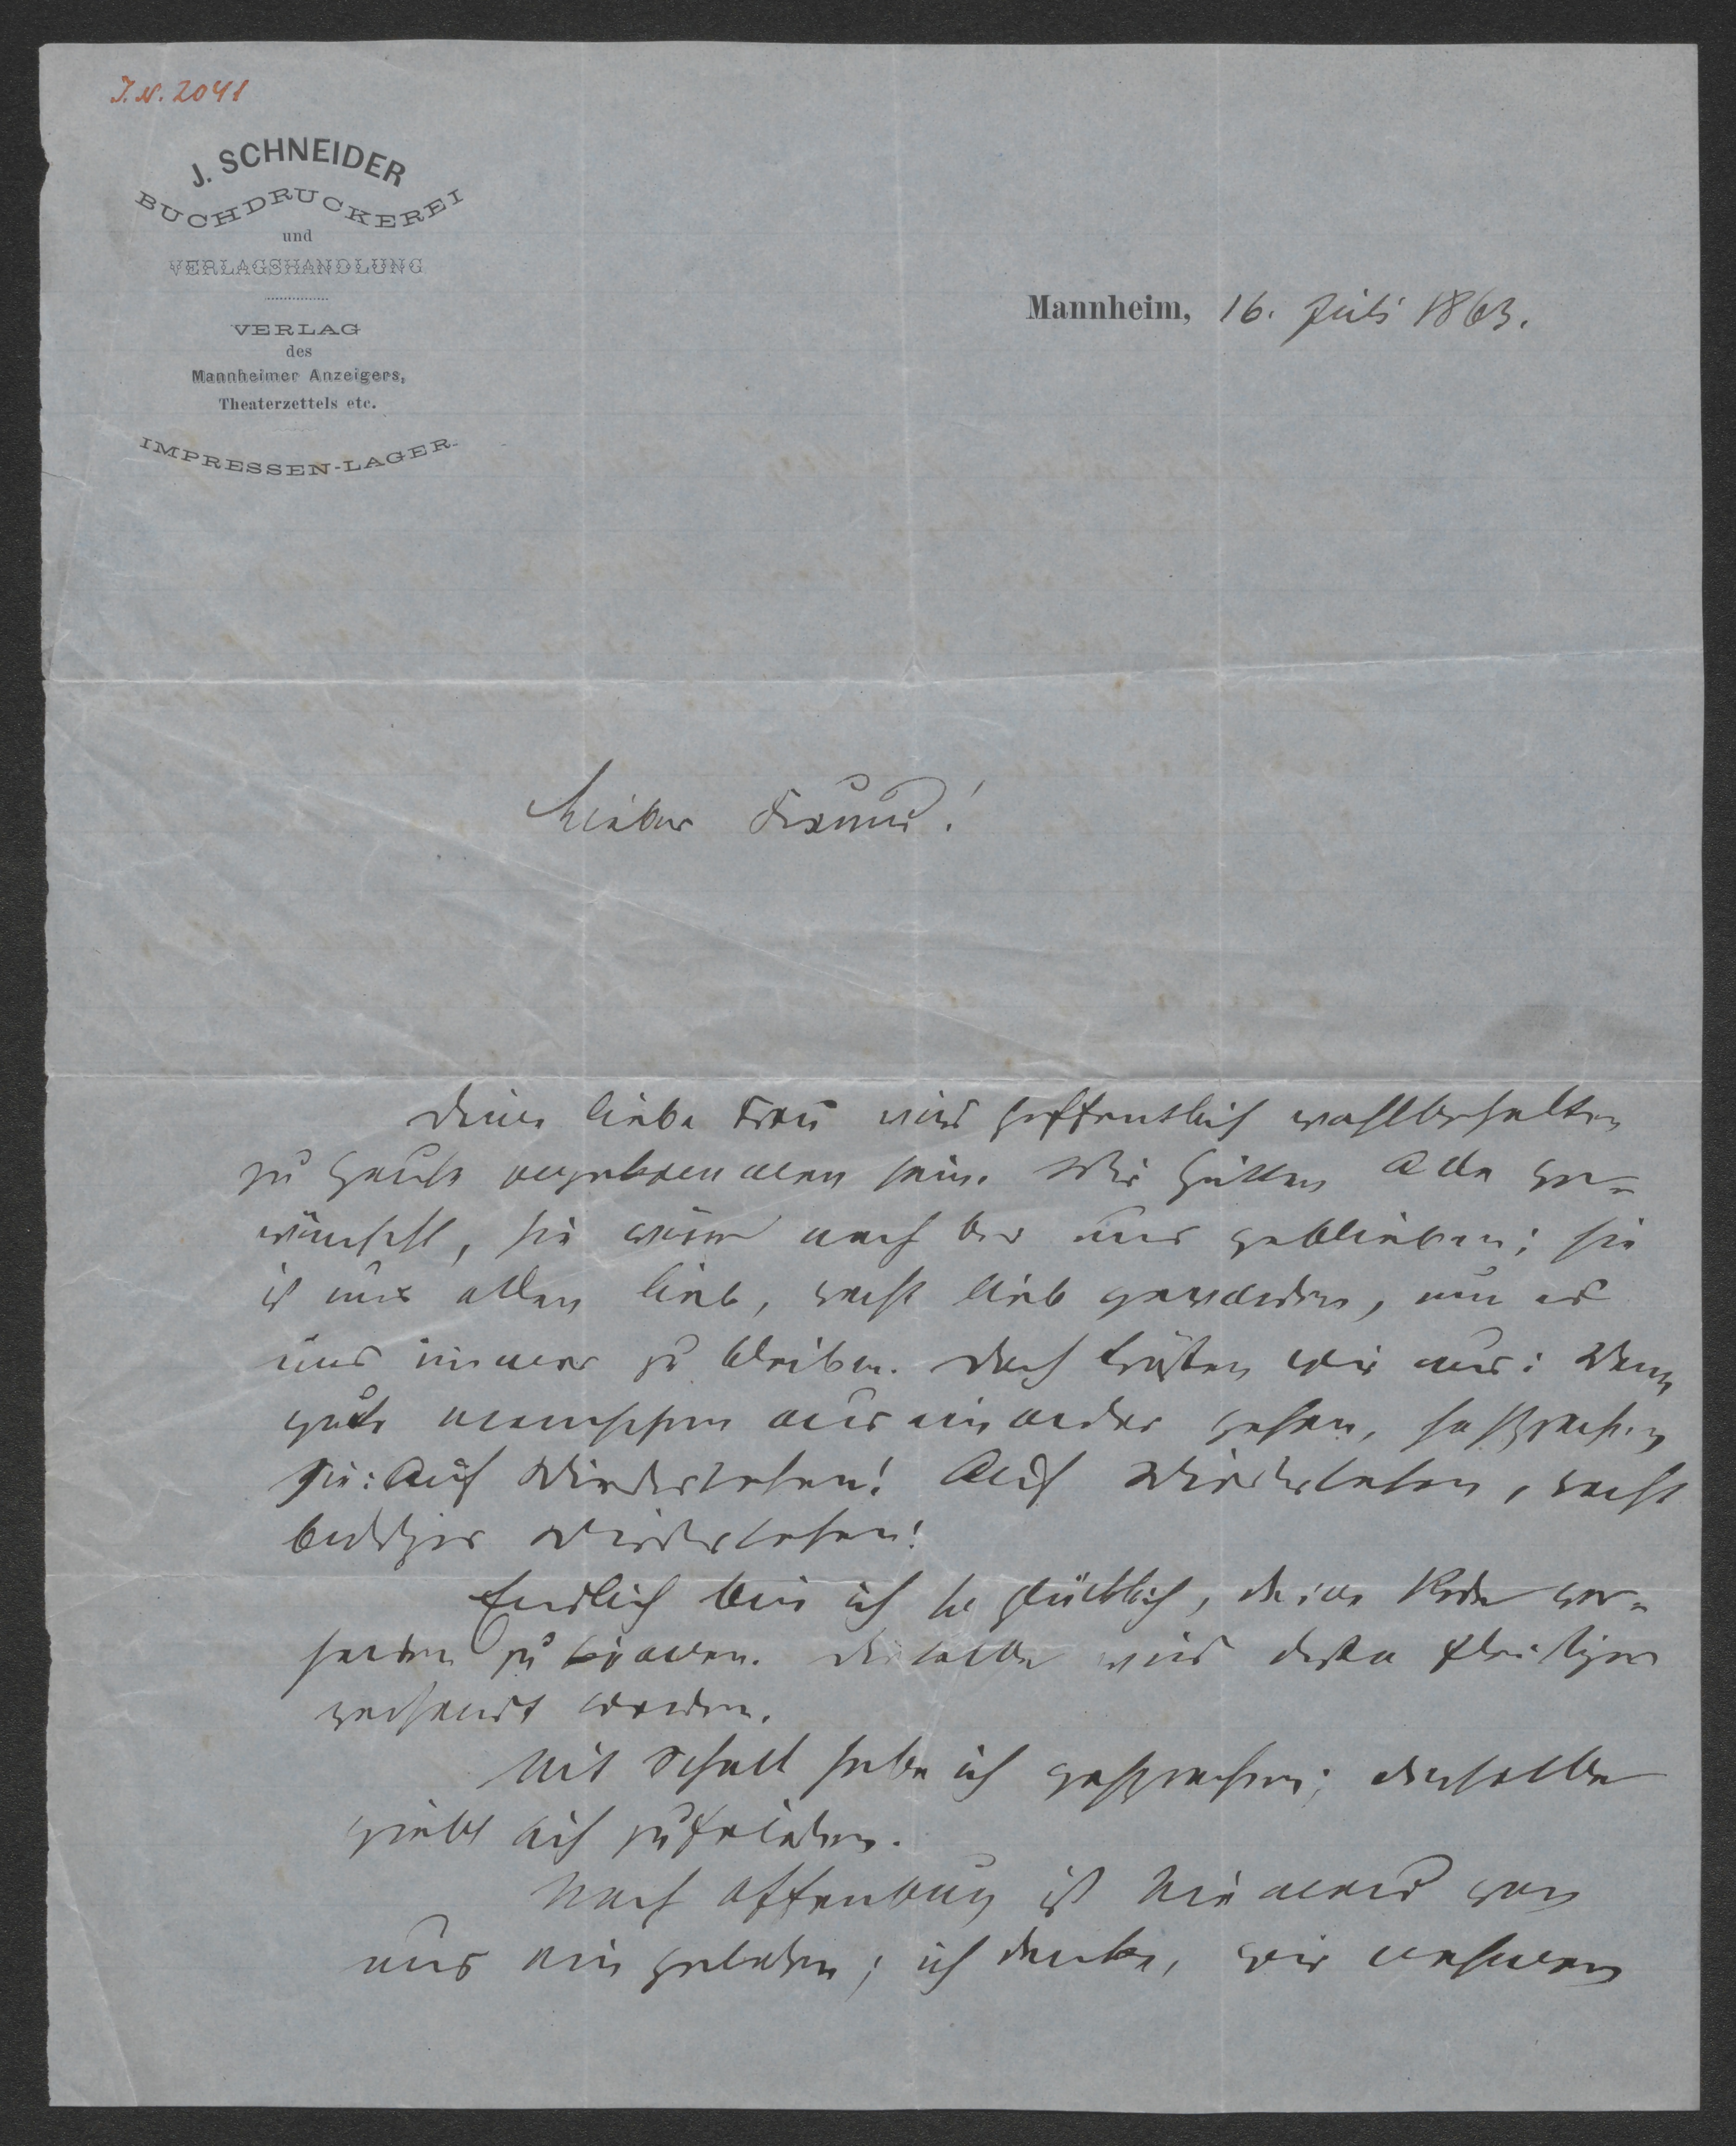 J. N. 2041
J. SCHNEIDER
BUCHDRUCKEREI
und
VERLAGSHANDLUNG
VERLAG
des
Mannheimer Anzeigers,
Theaterzettels etc.
IMPRESSEN-LAGER.
Mannheim, 16. Juli 1863.
Lieber Freund!
Deine liebe Frau wird hoffentlich wohlbehalten
zu Hause angekommen sein. Wir hätten Alle ge-
wünscht, sie wäre noch bei uns geblieben; sie
ist uns allen lieb, recht lieb geworden, um es
uns immer zu bleiben. Doch trösten wir uns: Wenn
gute Menschen auseinander gehen, so sprechen
sie: Auf Wiedersehen! Auf Wiedersehen, recht
baldiges Wiedersehen!
Endlich bin ich so glücklich, deine Rede ver-
senden zu können. Dieselbe wird desto fleißiger
versandt werden.
Mit Schall habe ich gesprochen; derselbe
giebt sich zufrieden.
Nach Offenburg ist Niemand von
uns eingeladen; ich denke, wir nehmen